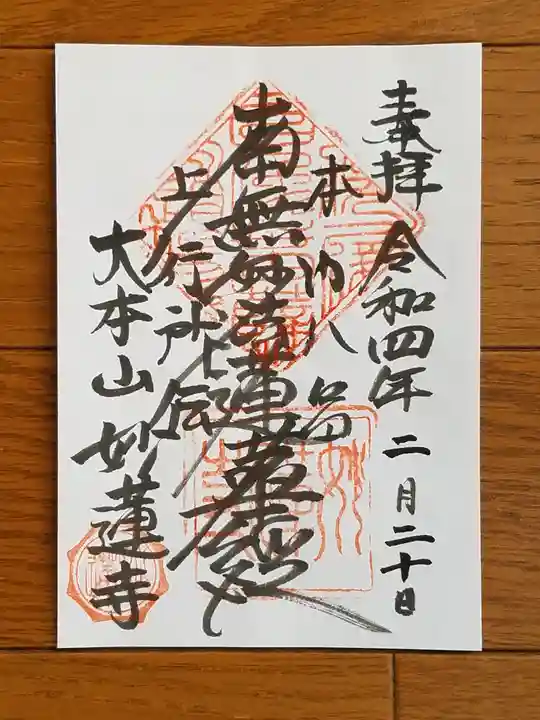 奉拝 令和四年二月二十日
本門八品
南無妙法蓮華経
上行所伝
大本山妙蓮寺
妙